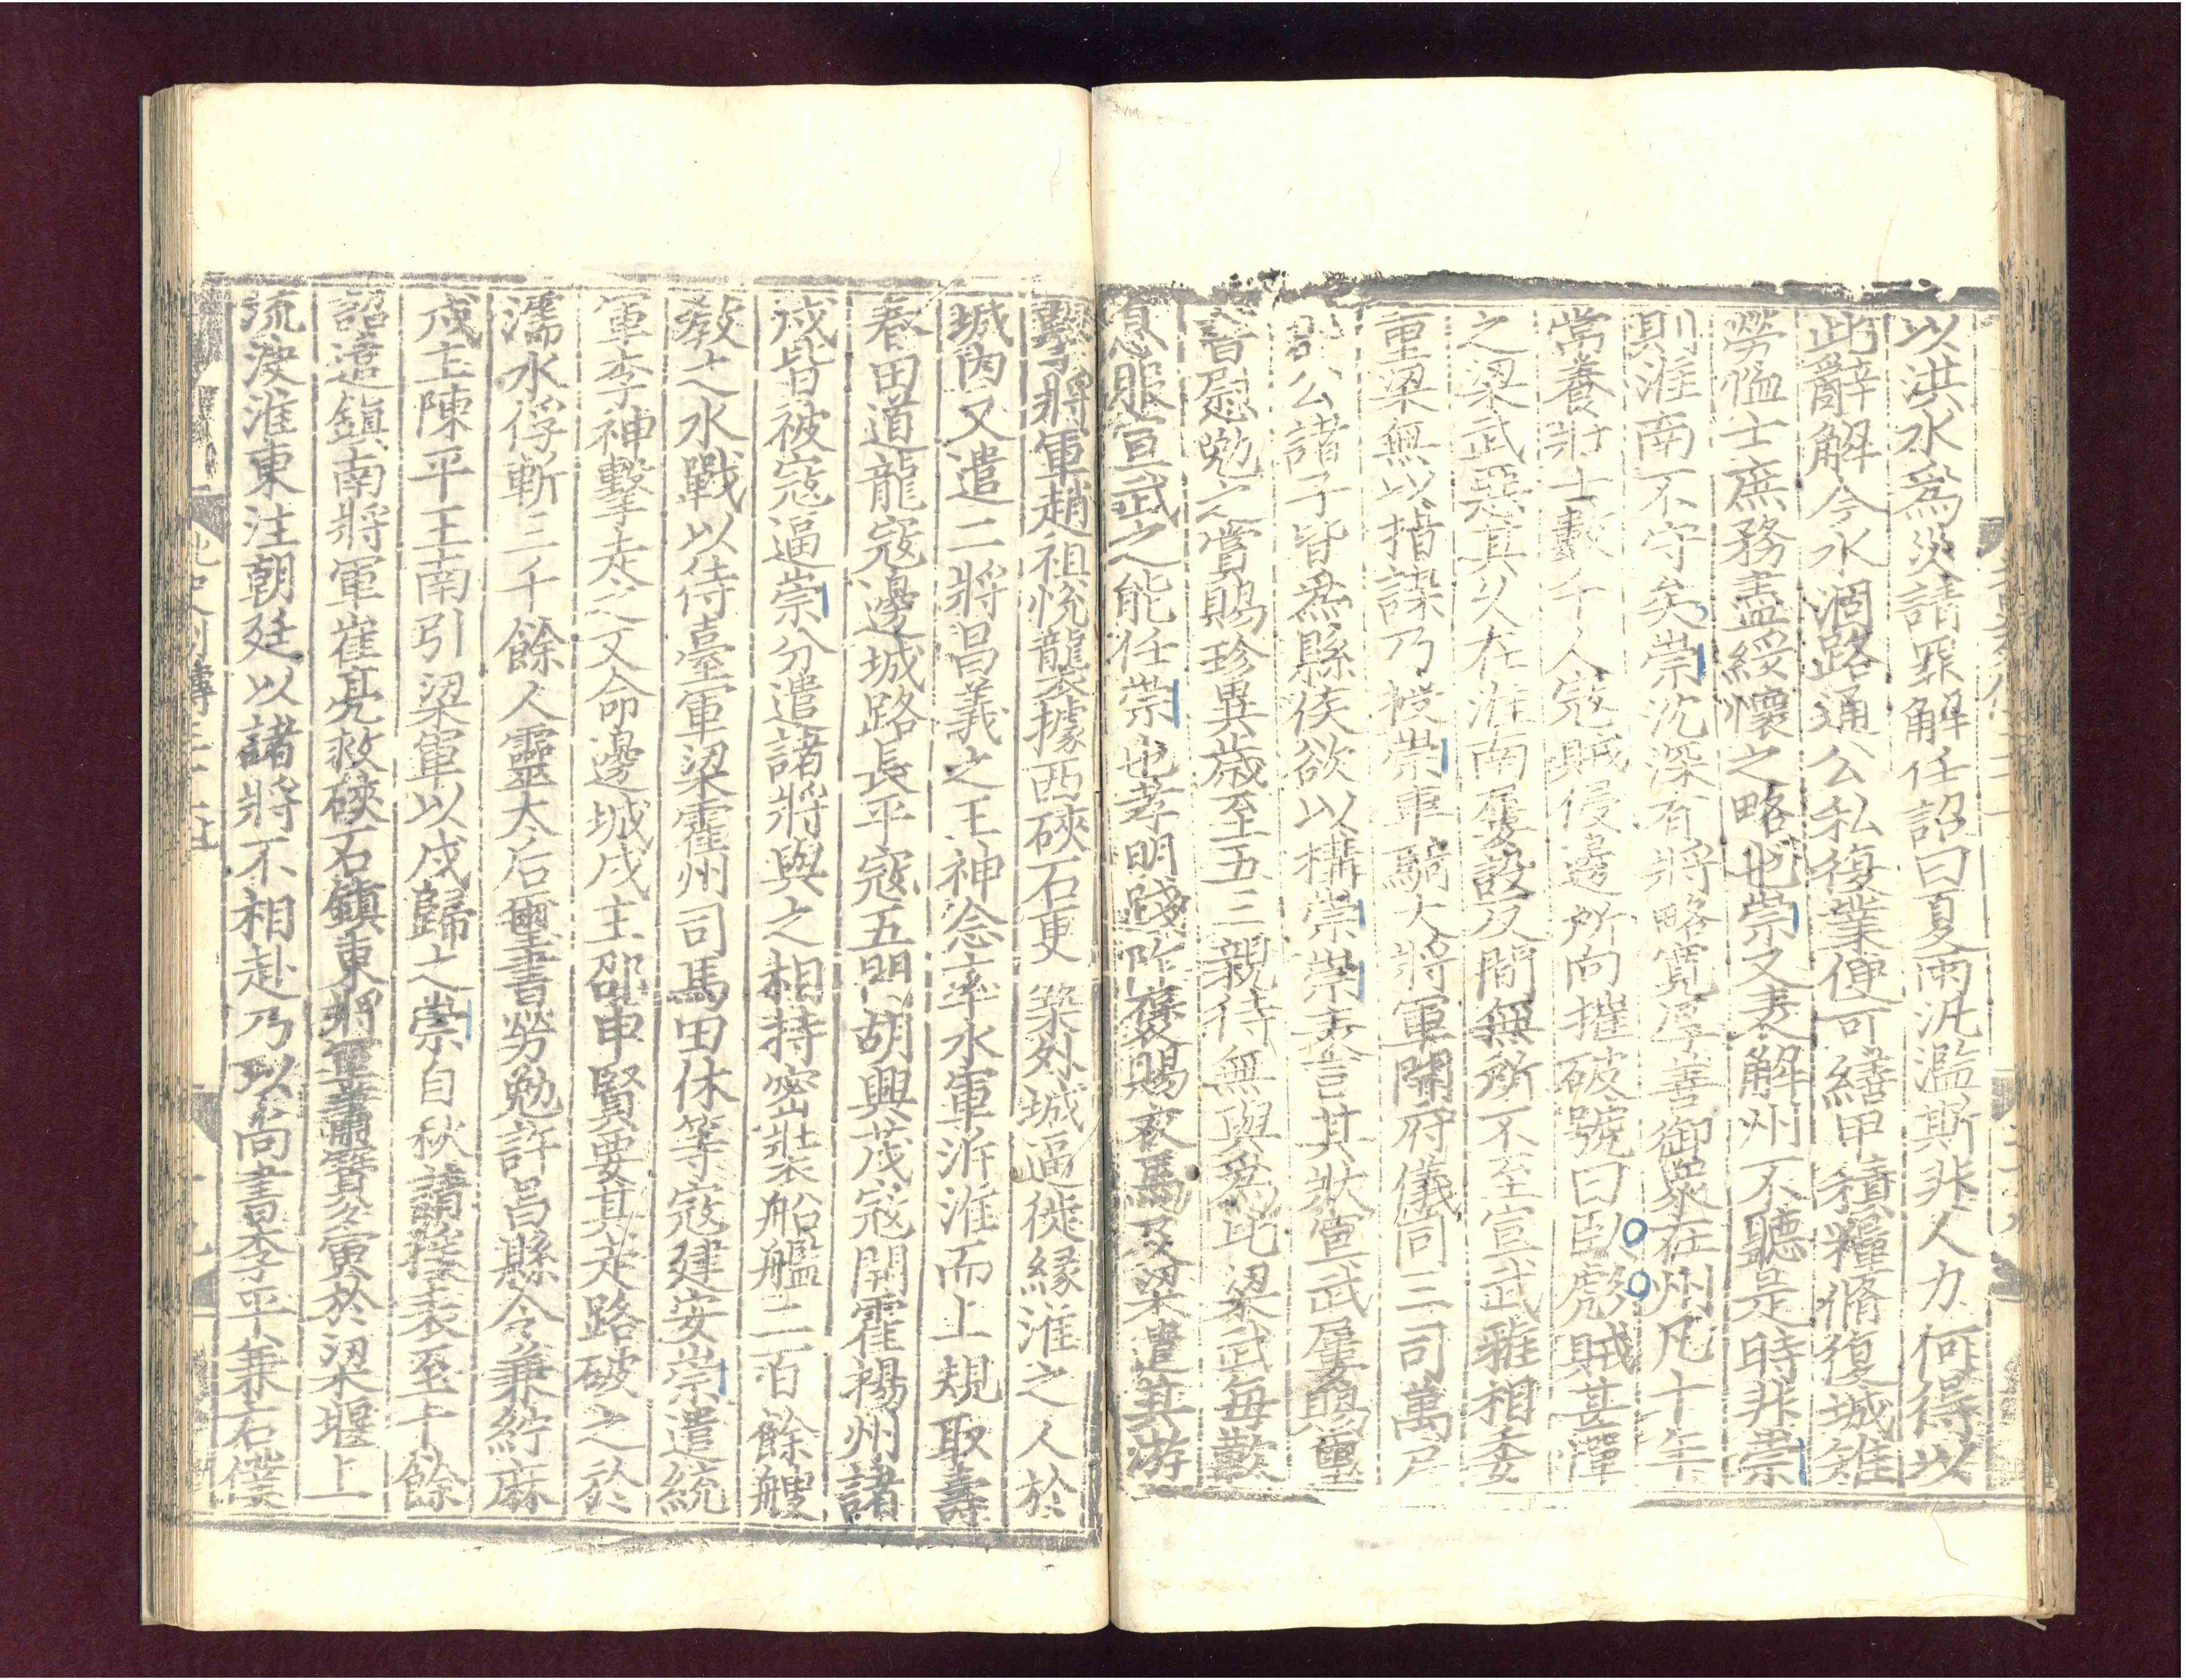 以洪水爲災請罪解任詔曰夏雨汎濫斯非人力何得以
此辭解今水涸路通公私復業便可繕甲積糧脩復城雉
勞恤士庶務盡綏懷之略也崇又表解州不聽是時非崇
則淮南不守矣崇沈深有將略寬厚善御衆在州凡十年
常養壯士數千人寇賊侵邊所向摧破號曰臥彪賊甚憚
之梁武惡其久在淮南屢設反間無所不至宣武雅相委
重梁無以措謀乃授崇車騎大將軍開府儀同三司萬戶
郡公諸子皆爲縣侯欲以構崇崇表言其狀宣武屢賜璽
書慰勉之賞賜珍異歲至五三親待無與爲比梁武每歎
息服宣武之能任崇也孝明踐阼襃賜衣馬及梁遣其游
擊將軍趙祖悅襲據西硤石更築外城逼徙緣淮之人於
城內又遣二將昌義之王神念率水軍泝淮而上規取壽
春田道龍寇邊城路長平寇五門胡興茂寇開霍揚州諸
戍皆被寇逼崇分遣諸將與之相持密裝船艦二百餘艘
敎之水戰以待臺軍梁霍州司馬田休等寇建安崇遣統
軍李神擊走之又命邊城戍主邵申賢要其走路破之於
濡水俘斬三千餘人靈太后璽書勞勉許昌縣令兼紵麻
戍主陳平王南引梁軍以戍歸之崇自秋請援表至十餘
詔遣鎮南將軍崔亮救硤石鎮東將軍蕭寶夤於梁堰上
流決淮東注朝廷以諸將不相赴乃以尚書李平兼右僕
北史列傳三十一